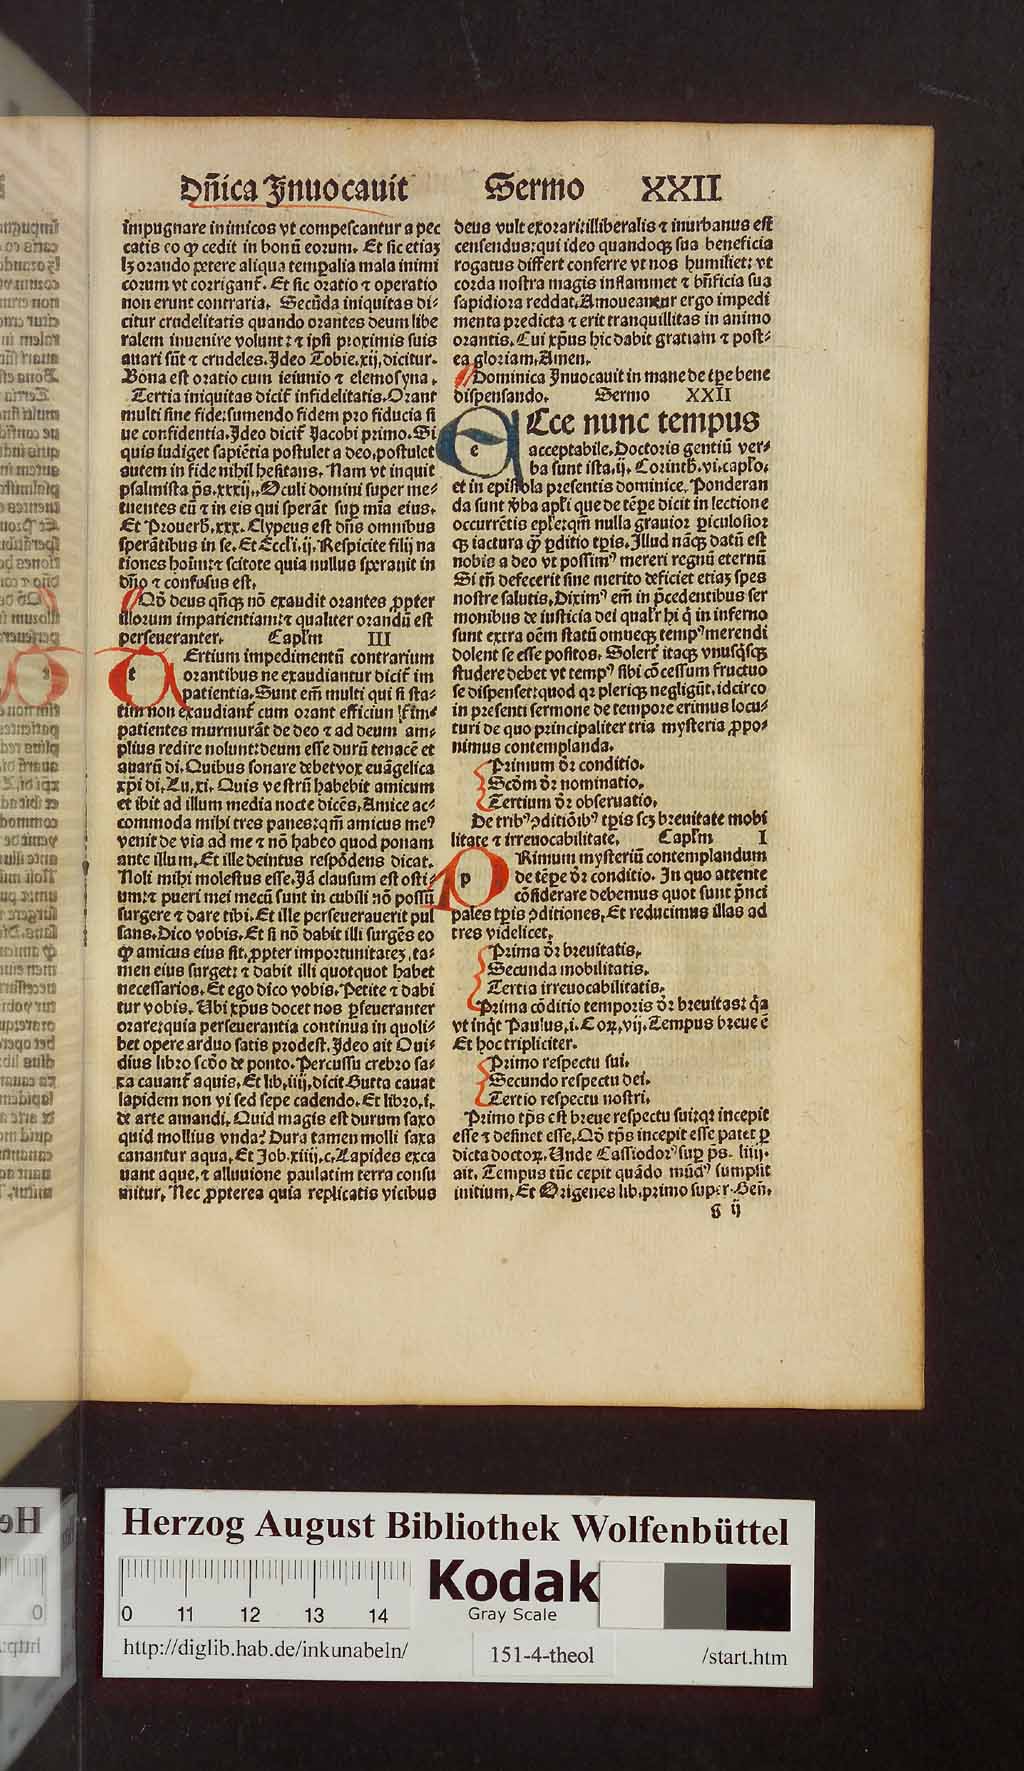 Dñica Inuocauit Sermo XXII
impugnare inimicos vt compescantur a pec
catis eo ꝙ cedit in bonū eorum. Et sic etiaꝫ
lꝫ orando petere aliqua temꝑalia mala inimi
corum vt corrigant᷑. Et sic oratio ⁊ operatio
non erunt contraria. Secūda iniquitas di⸗
citur crudelitatis quando orantes deum libe
ralem inuenire volunt: ⁊ ipsi proximis suis
auari sūt ⁊ crudeles. Ideo Tobie.xij.dicitur.
Bona est oratio cum ieiunio ⁊ elemosyna.
Tertia iniquitas dicit᷑ infidelitatis. Orant
multi sine fide: sumendo fidem pro fiducia si
ue confidentia. Ideo dicit᷑ Jacobi primo. Si
quis indiget sapiētia postulet a deo. postulet
autem in fide nihil hesitans. Nam vt inquit
psalmista p̄s.xxxij. Oculi domini super me⸗
tuentes eū ⁊ in eis qui sperāt suꝑ mīa eius.
Et Prouerb̄.xxx. Clypeus est dn̄s omnibus
sperātibus in se. Et Eccl̄i.ij. Respicite filij na
tiones hoīm: ⁊ scitote quia nullus sperauit in
dn̄o ⁊ confusus est.
Qō deus qn̄qꝫ nō exaudit orantes ꝓpter
illorum impatientiam: ⁊ qualiter orandū est
perseueranter. Capl̄m III
Ertium impedimentū contrarium
t
orantibus ne exaudiantur dicit᷑ im
patientia. Sunt em̄ multi qui si sta⸗
tim non exaudiant᷑ cum orant efficiun᷑ im⸗
patientes murmurāt de deo ⁊ ad deum am⸗
plius redire nolunt: deum esse durū tenacē et
auarū di. Quibus sonare debet vox euāgelica
xp̄i di. Lu.xi. Quis vestrū habebit amicum
et ibit ad illum media nocte dicēs. Amice ac⸗
commoda mihi tres panes: qm̄ amicus meꝰ
venit de via ad me ⁊ nō habeo quod ponam
ante illum. Et ille deintus respōdens dicat.
Noli mihi molestus esse. Iā clausum est osti⸗
um: ⁊ pueri mei mecū sunt in cubili nō possū
surgere ⁊ dare tibi. Et ille perseuerauerit pul
sans. Dico vobis. Et si nō dabit illi surgēs eo
ꝙ amicus eius sit. ꝓpter importunitateꝫ ta⸗
men eius surget: ⁊ dabit illi quotquot habet
necessarios. Et ego dico vobis. Petite ⁊ dabi
tur vobis. Ubi xp̄us docet nos ꝑseueranter
orare: quia perseuerantia continua in quoli⸗
bet opere arduo satis prodest. Ideo ait Oui⸗
dius libro scd̄o de ponto. Percussu crebro sa⸗
xa cauant᷑ aquis. Et lib.iiij. dicit. Gutta cauat
lapidem non vi sed sepe cadendo. Et libro.i.
de arte amandi. Quid magis est durum saxo
quid mollius vnda? Dura tamen molli saxa
cauantur aqua. Et Job.xiiij.c. Lapides exca
uant aque. ⁊ alluuione paulatim terra consu
mitur. Nec ꝓpterea quia replicatis vicibus
deus vult exorari: illiberalis ⁊ inurbanus est
censendus: qui ideo quandoqꝫ sua beneficia
rogatus differt conferre vt nos humiliet: vt
corda nostra magis inflammet ⁊ bn̄ficia sua
sapidiora reddat. Amoueantur ergo impedi
menta predicta ⁊ erit tranquillitas in animo
orantis. Cui xp̄us hic dabit gratiam ⁊ post⸗
ea gloriam. Amen.
Dominica Inuocauit in mane de tp̄e bene
dispensando. Sermo XXII
Cce nunc tempus
e
acceptabile. Doctoris gentiū ver⸗
ba sunt ista.ij. Corinth̄.vi.capl̄o.
et in epistola presentis dominice. Ponderan
da sunt v̄ba apl̄i que de tēpe dicit in lectione
occurrētis epl̄e: qm̄ nulla grauior ꝑiculosior
qꝫ iactura ꝙ̄ ꝑditio tp̄is. Illud nāqꝫ datū est
nobis a deo vt possimꝰ mereri regnū eternū
Si tn̄ defecerit sine merito deficiet etiaꝫ spes
nostre salutis. Diximꝰ em̄ in p̄cedentibus ser
monibus de iusticia dei qualr̄ hi q̇ in inferno
sunt extra oēm statū omneqꝫ tempꝰ merendi
dolent se esse positos. Solert᷑ itaqꝫ vnusq̇sqꝫ
studere debet vt tempꝰ sibi cōcessum fructuo
se dispenset: quod qꝛ pleriqꝫ negligūt. idcirco
in presenti sermone de tempore erimus locu⸗
turi de quo principaliter tria mysteria ꝓpo⸗
nimus contemplanda.
Primum dr̄ conditio.
Scd̄m dr̄ nominatio.
Tertium dr̄ obseruatio.
De tribꝰ ꝯditiōibꝰ tp̄is scꝫ breuitate mobi
litate ⁊ irreuocabilitate. Capl̄m I
Rimum mysteriū contemplandum
p
de tēpe dr̄ conditio. In quo attente
cōsiderare debemus quot sunt p̄nci
pales tp̄is ꝯditiones. Et reducimus illas ad
tres videlicet.
Prima dr̄ breuitatis.
Secunda mobilitatis.
Tertia irreuocabilitatis.
Prima cōditio temporis dr̄ breuitas: q̇a
vt inq̇t Paulus.i. Coꝝ.vij. Tempus breue ē
Et hoc tripliciter.
Primo respectu sui.
Secundo respectu dei.
Tertio respectu nostri.
Primo tp̄s est breue respectu sui: qꝛ incepit
esse ⁊ desinet esse. Qō tp̄s incepit esse patet ꝑ
dicta doctoꝝ. Unde Cassiodorꝰ suꝑ p̄s. liiij.
ait. Tempus tūc cepit quādo mūdꝰ sumpsit
initium. Et Origenes lib. primo super Gen̄.
g ij
Herzog August Bibliothek Wolfenbüttel
0 11 12 13 14
Kodak
Gray Scale
http://diglib.hab.de/inkunabeln/ 151-4-theol /start.htm